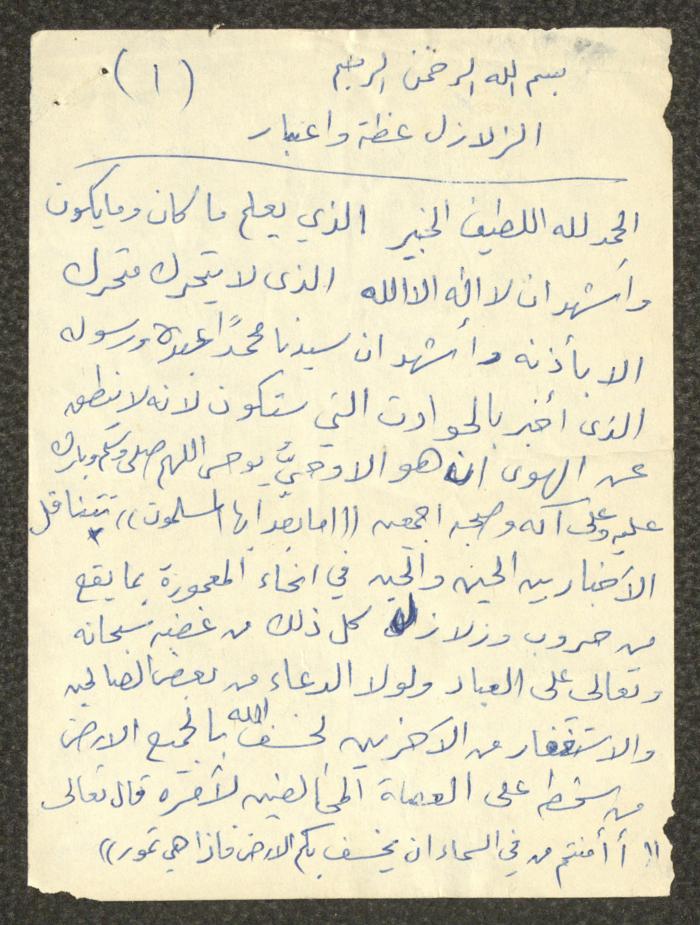 بسم الله الرحمن الرحيم (١)
الزلازل عظة واعتبار
الحمد لله اللطيف الخبير الذي يعلم ما كان وما يكون
وأشهد ان لا اله الا الله الذى لا يتحرك متحرك
الا بأذنه وأشهد ان سيدنا محمدًا عبده ورسوله
الذى أخبر بالحوادث التي ستكون لانه لا ينطق
عن الهوى ان هو الا وحيٌ يوحى اللهم صلى وسلم وبارك
عليه وعلى آله وصحبه اجمعين ((اما بعد ايها المسلمون)) تتناقل
الأخبار بين الحين والحين في انحاء المعمورة بما يقع
من حروب وزلازل كل ذلك من غضبه سبحانه
وتعالى على العباد ولولا الدعاء من بعض الصالحين
والاستغفار من الآخرين لخسف الله بالجميع الارض
من سخط على العصاة المخالفين لأمره قال تعالى
((أأمنتم من في السماء ان يخسف بكم الارض فاذا هي تمور))